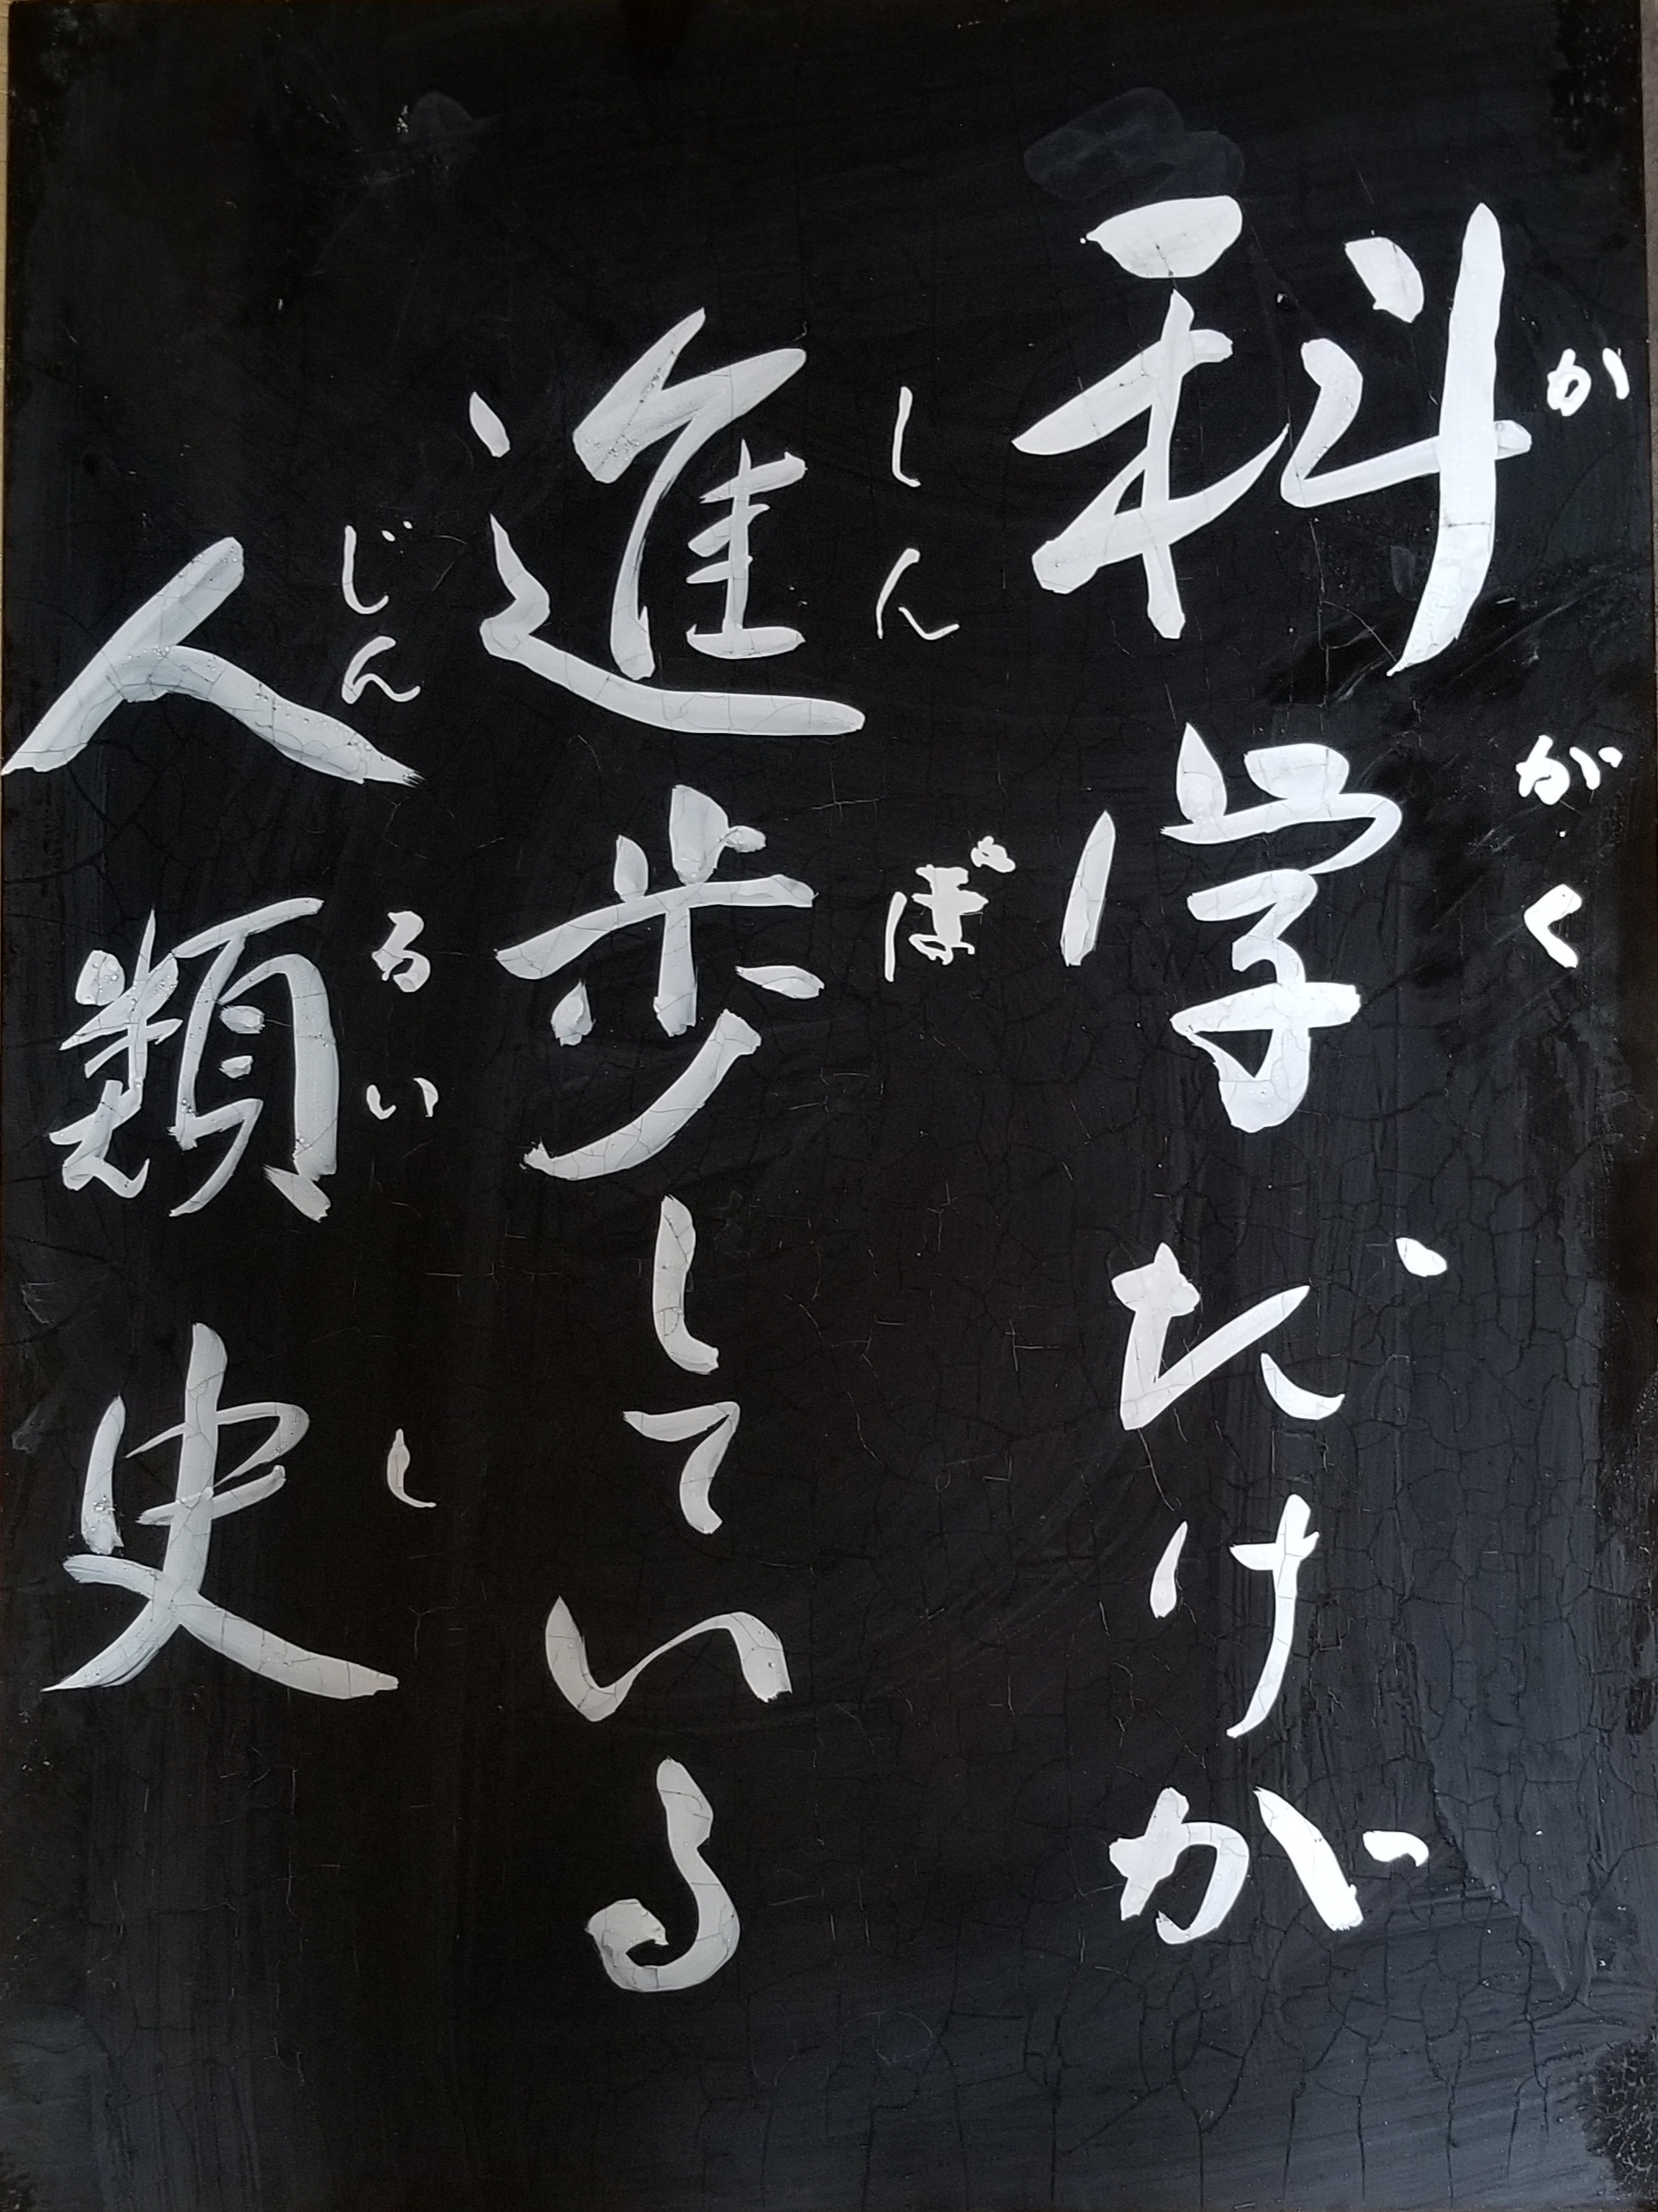 科学だけが
かがく
進歩している
しんぽ
人類史
じんるいし